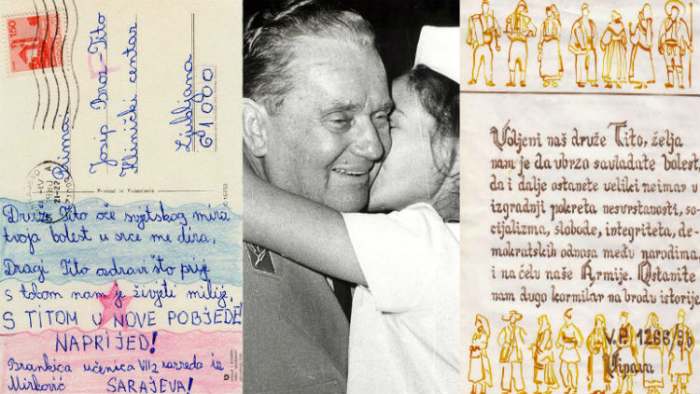 Prima:
Josip Broz-Tito
Klinički centar
Ljubljana
61000
Druže Tito oče svjetskog mira
tvoja bolest u srce me dira,
Dragi Tito ozdravi što prije
s tobom nam je živjeti milije,
S TITOM U NOVE POBJEDE
NAPRIJED!
Brankica učenica VII2 razreda iz
Mirković SARAJEVA!
Voljeni naš druže Tito, želja
nam je da ubrzo savladate bolest,
da i dalje ostanete veliki neimar u
izgradnji pokreta nesvrstavosti, so-
cijalizma, slobode, integriteta, de-
mokratskih odnosa među narodima,
i na čelu naše Armije. Ostanite
nam dugo kormilar na brodu istorije
V.P. 1286/
Vipava